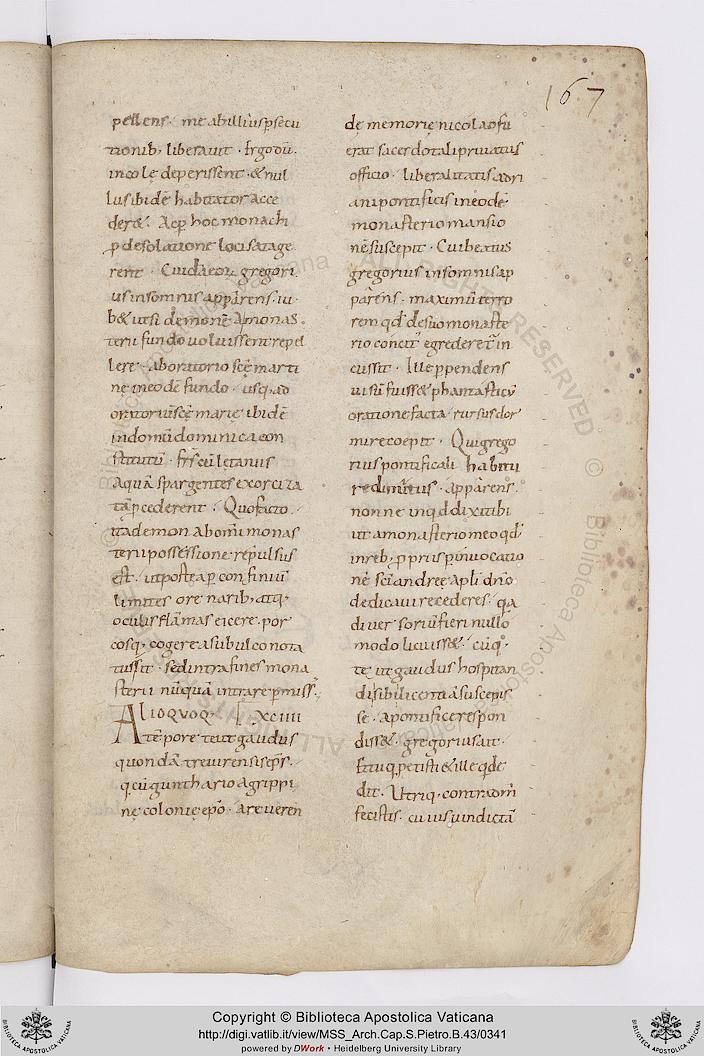 167
pellens · me ab illiusp̄secu
tionib; liberauit · Ergo dū
incolę deperissent · & nul
lus ibidē habitator acce
der& · Ac p̄ hoc monachi
p̄ desolatione loci satage
rent · Cuidā eoꝝ gregori
us insomnis apparens · iu
b& ut si demonē a monas
terii fundo uoluissent repel
lere · ab oratorio sc̄i marti
ni in eodē fundo · usq; ad
oratoriū sc̄ę marię ibidē
in domū dominica con
stitutū · fr̄s cū lętaniis
aquā spargentes exorciza
tā p̄cederent · Quo facto
ita demon ab om̄i monas
terii possessione repulsus
est · ut poste a p̄ confiniū
limites ore narib; atq;
oculis flāmas eicere · por
cosq; cogere a subulco nota
tus sit · sed intra fines mona
sterii nūquā intrare p̄miss
ALIO QUOQ · XCIIII
tēpore teutgaudus
quondā treuirensis ep̄s ·
q̄ cū gunthario agrippi
nę colonię ep̄o · a reueren
dę memorię nicolao fu
erat sacerdotali priuatus
officio · liberalitatis adri
ani pontificis in eodē
monasterio mansio
nē suscepit · Cui beatus
gregorius in somnis ap
parens · maximū terro
rem qd̄ de suo monaste
rio concit' egrederet̄ in
cussit · Ille ppendens
uisū fuisse phantasticū
oratione facta · rursus dor
mire coepit · Qui grego
rius pontificali habitu
redimitus · apparens ·
nonne inquid dixi tibi
ut a monasterio meo qd̄
in reb; p̄priis p̄ inuocatio
nē sc̄i andreę apl̄i dn̄o
dedicaui recederes · q̄a
diuersoriū fieri nullo
modo licuiss& · cūq;
te utgaudus hospitan
di sibi licentiā suscepis
se · a pontifice respon
diss& · gregorius ait ·
Et tu q̄ petisti & ille q̄ de
dit · Utriq; contra om̄
fecistis · cuius uindictā
Copyright © Biblioteca Apostolica Vaticana
http://digi.vatlib.it/view/MSS_Arch.Cap.S.Pietro.B.43/0341
powered by DWork • Heidelberg University Library